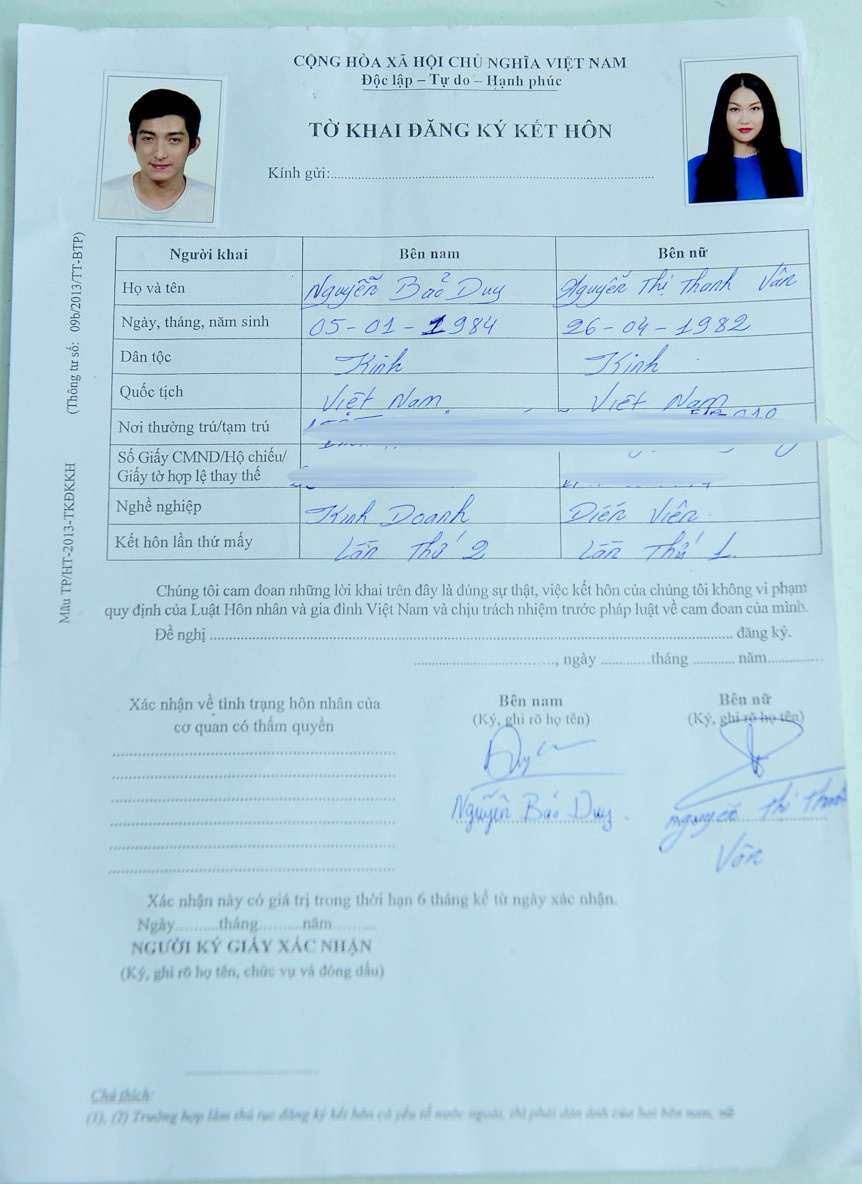 CỘNG HÒA XÃ HỘI CHỦ NGHĨA VIỆT NAM
Độc lập – Tự do – Hạnh phúc
TỜ KHAI ĐĂNG KÝ KẾT HÔN
Kính gửi:
Mẫu TP/HT-2013-TKĐKKH (Thông tư số: 09b/2013/TT-BTP)
Người khai Bên nam Bên nữ
Họ và tên Nguyễn Bảo Duy Nguyễn Thị Thanh Vân
Ngày, tháng, năm sinh 05-01-1984 26-04-1982
Dân tộc Kinh Kinh
Quốc tịch Việt Nam Việt Nam
Nơi thường trú/tạm trú
Số Giấy CMND/Hộ chiếu/
Giấy tờ hợp lệ thay thế
Nghề nghiệp Kinh Doanh Diễn Viên
Kết hôn lần thứ mấy Lần Thứ 2 Lần Thứ 1
Chúng tôi cam đoan những lời khai trên đây là đúng sự thật, việc kết hôn của chúng tôi không vi phạm
quy định của Luật Hôn nhân và gia đình Việt Nam và chịu trách nhiệm trước pháp luật về cam đoan của mình.
Đề nghị ........ đăng ký.
........, ngày ........ tháng ........ năm........
Xác nhận về tình trạng hôn nhân của
cơ quan có thẩm quyền
Bên nam
(Ký, ghi rõ họ tên)
Bên nữ
(Ký, ghi rõ họ tên)
Duy
Nguyễn Bảo Duy
Nguyễn Thị Thanh
Vân
Xác nhận này có giá trị trong thời hạn 6 tháng kể từ ngày xác nhận.
Ngày........tháng........năm........
NGƯỜI KÝ GIẤY XÁC NHẬN
(Ký, ghi rõ họ tên, chức vụ và đóng dấu)
Chú thích:
(1), (2) Trường hợp làm thủ tục đăng ký kết hôn có yếu tố nước ngoài, thì phải dán ảnh của hai bên nam, nữ